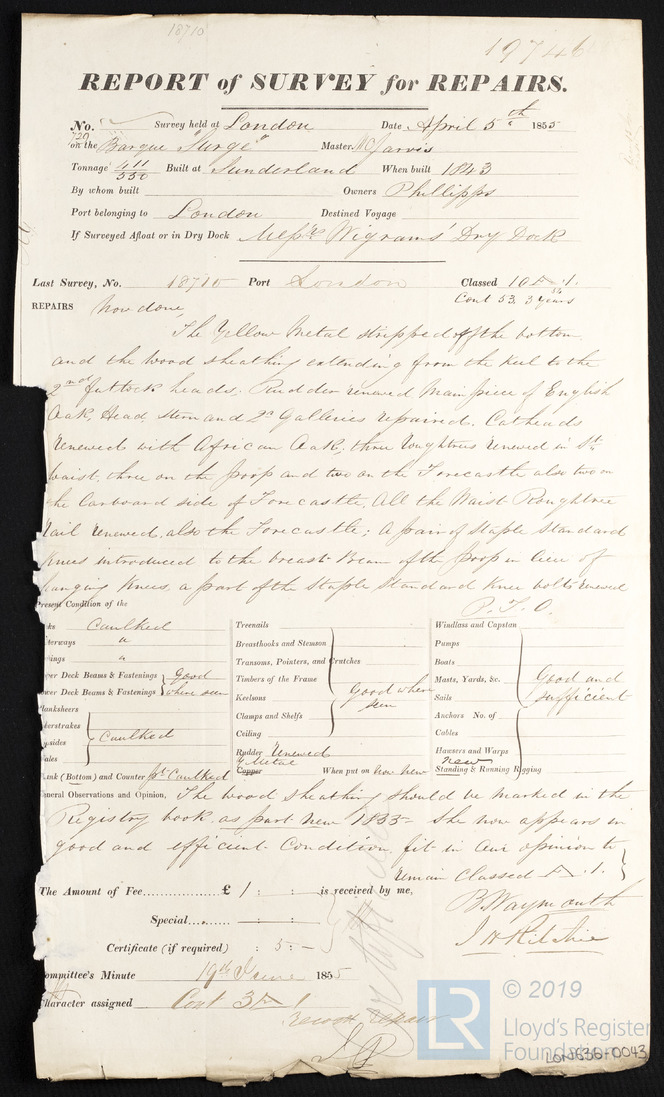 18710
19746
REPORT of SURVEY for REPAIRS.
No. Survey held at London Date, April 5th 1855
720
on the Barque "Surge" Master, McJarvis
Tonnage 411/550 Built at Sunderland When built 1843
By whom built Owners Phillipps
Port belonging to London Destined Voyage
If Surveyed Afloat or in Dry Dock Messrs Wigrams' Dry Dock
Last Survey, No. 18710 Port London Classed 10 A.1.
Cont 53, 3 years
REPAIRS Now done,
The Yellow Metal stripped off the bottom
and the wood sheathing extending from the keel to the
2nd futtock heads. Rudder renewed Main piece of English
Oak, Head Stern and Qr Galleries repaired. Catheads
Renewed with African Oak, three Roughtrees renewed in St
waist, three on the poop and two on the Forecastle also two on
the Larboard side of Forecastle, All the Waist Roughtree
Rail renewed, also the Forecastle; A pair of Staple Standard
Knees introduced to the breast Beam of the poop in lieu of
hanging Knees, a part of the Staple Standard Knee bolts renewed
P.T.O.
Present Condition of the
ks Caulked
terways "
mings "
per Deck Beams & Fastenings
ower Deck Beams & Fastenings
Good where seen
lanksheers
erstrakes
psides
ales
Caulked
lank (Bottom) and Counter pt Caulked
Treenails
Breasthooks and Stemson
Transoms, Pointers, and Crutches
Timbers of the Frame
Keelsons
Clamps and Shelfs
Ceiling
Good where seen
Rudder Renewed
Y Metal
Copper When put on now new
Windlass and Capstan
Pumps
Boats
Masts, Yards, &c.
Sails
Anchors No. of
Cables
Hawsers and Warps
Good and sufficient
new
Standing & Running Rigging
eneral Observations and Opinion, The wood sheathing should be marked in the
Registry book as part New 1855 - She now appears in
good and efficient Condition, fit in our opinion to
remain Classed A.1.
The Amount of Fee £ 1 : : is received by me,
B Waymouth
J H Ritchie
Special : :
Certificate (if required) : 5 : -
ommittee's Minute 19th June 1855
haracter assigned Cont 3 A 1
© 2019
LR
Lloyd's Register
Foundation
LON636-0043